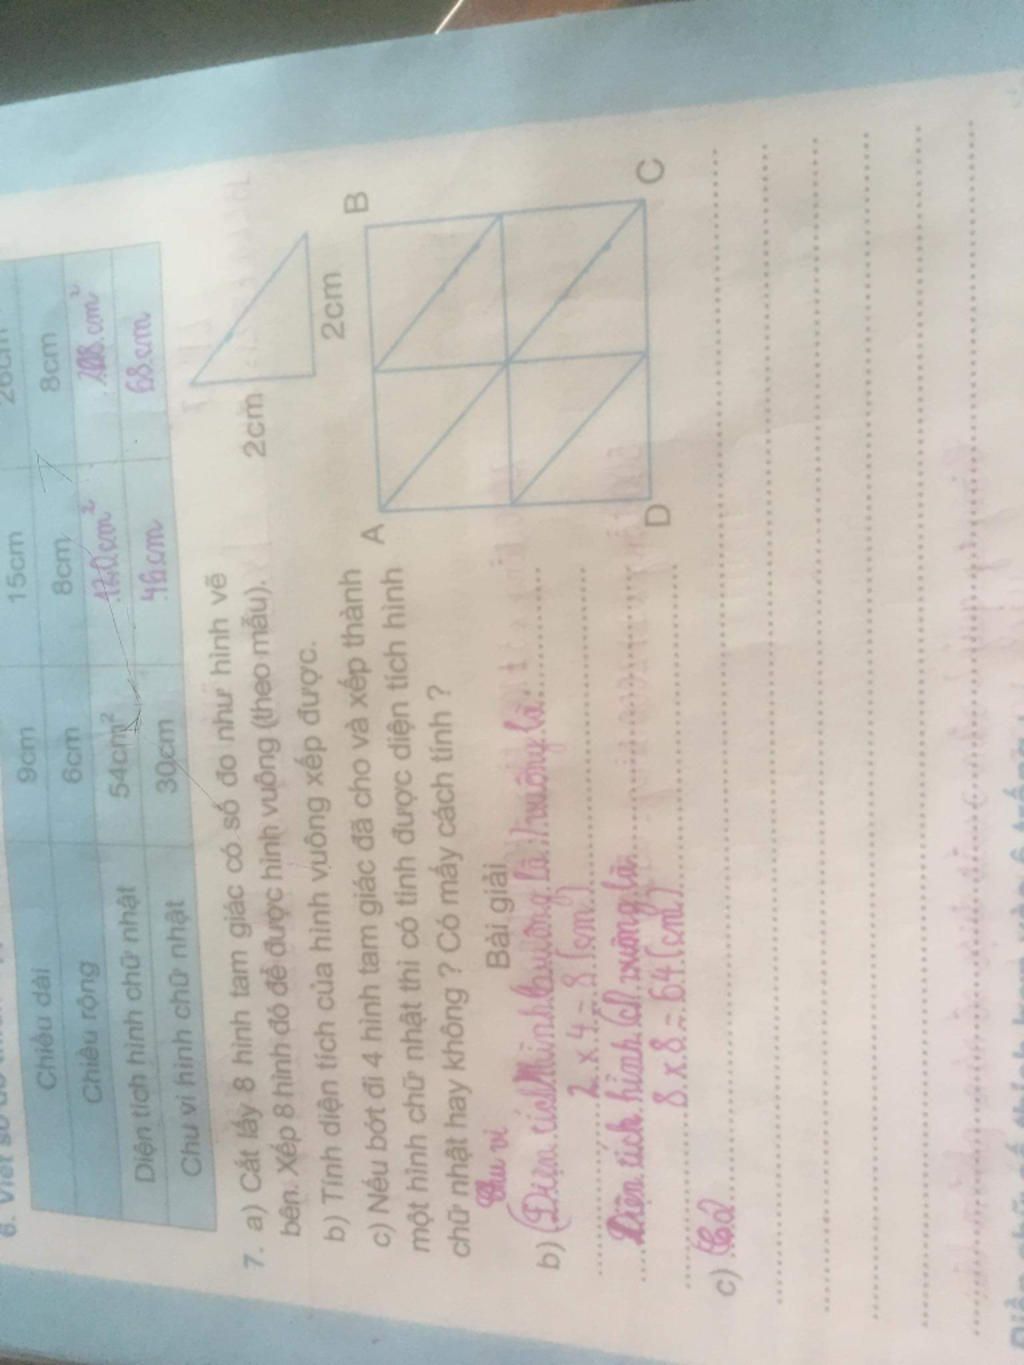 6. Viết số
26cm
15cm
9cm
Chiều dài
8cm
8cm
6cm
Chiều rộng
108 cm²
120cm²
54cm²
Diện tích hình chữ nhật
68cm
46cm
30cm
Chu vi hình chữ nhật
7. a) Cắt lấy 8 hình tam giác có số đo như hình vẽ
bên. Xếp 8 hình đó để được hình vuông (theo mẫu).
b) Tính diện tích của hình vuông xếp được.
c) Nếu bớt đi 4 hình tam giác đã cho và xếp thành
một hình chữ nhật thì có tính được diện tích hình
chữ nhật hay không ? Có mấy cách tính ?
2cm
2cm
A
B
C
D
Bài giải
Chu vi
b) (Diện tích) hình vuông là
2 x 4 = 8 (cm)
Diện tích hình vuông là
8 x 8 = 64 (cm)
c) Có